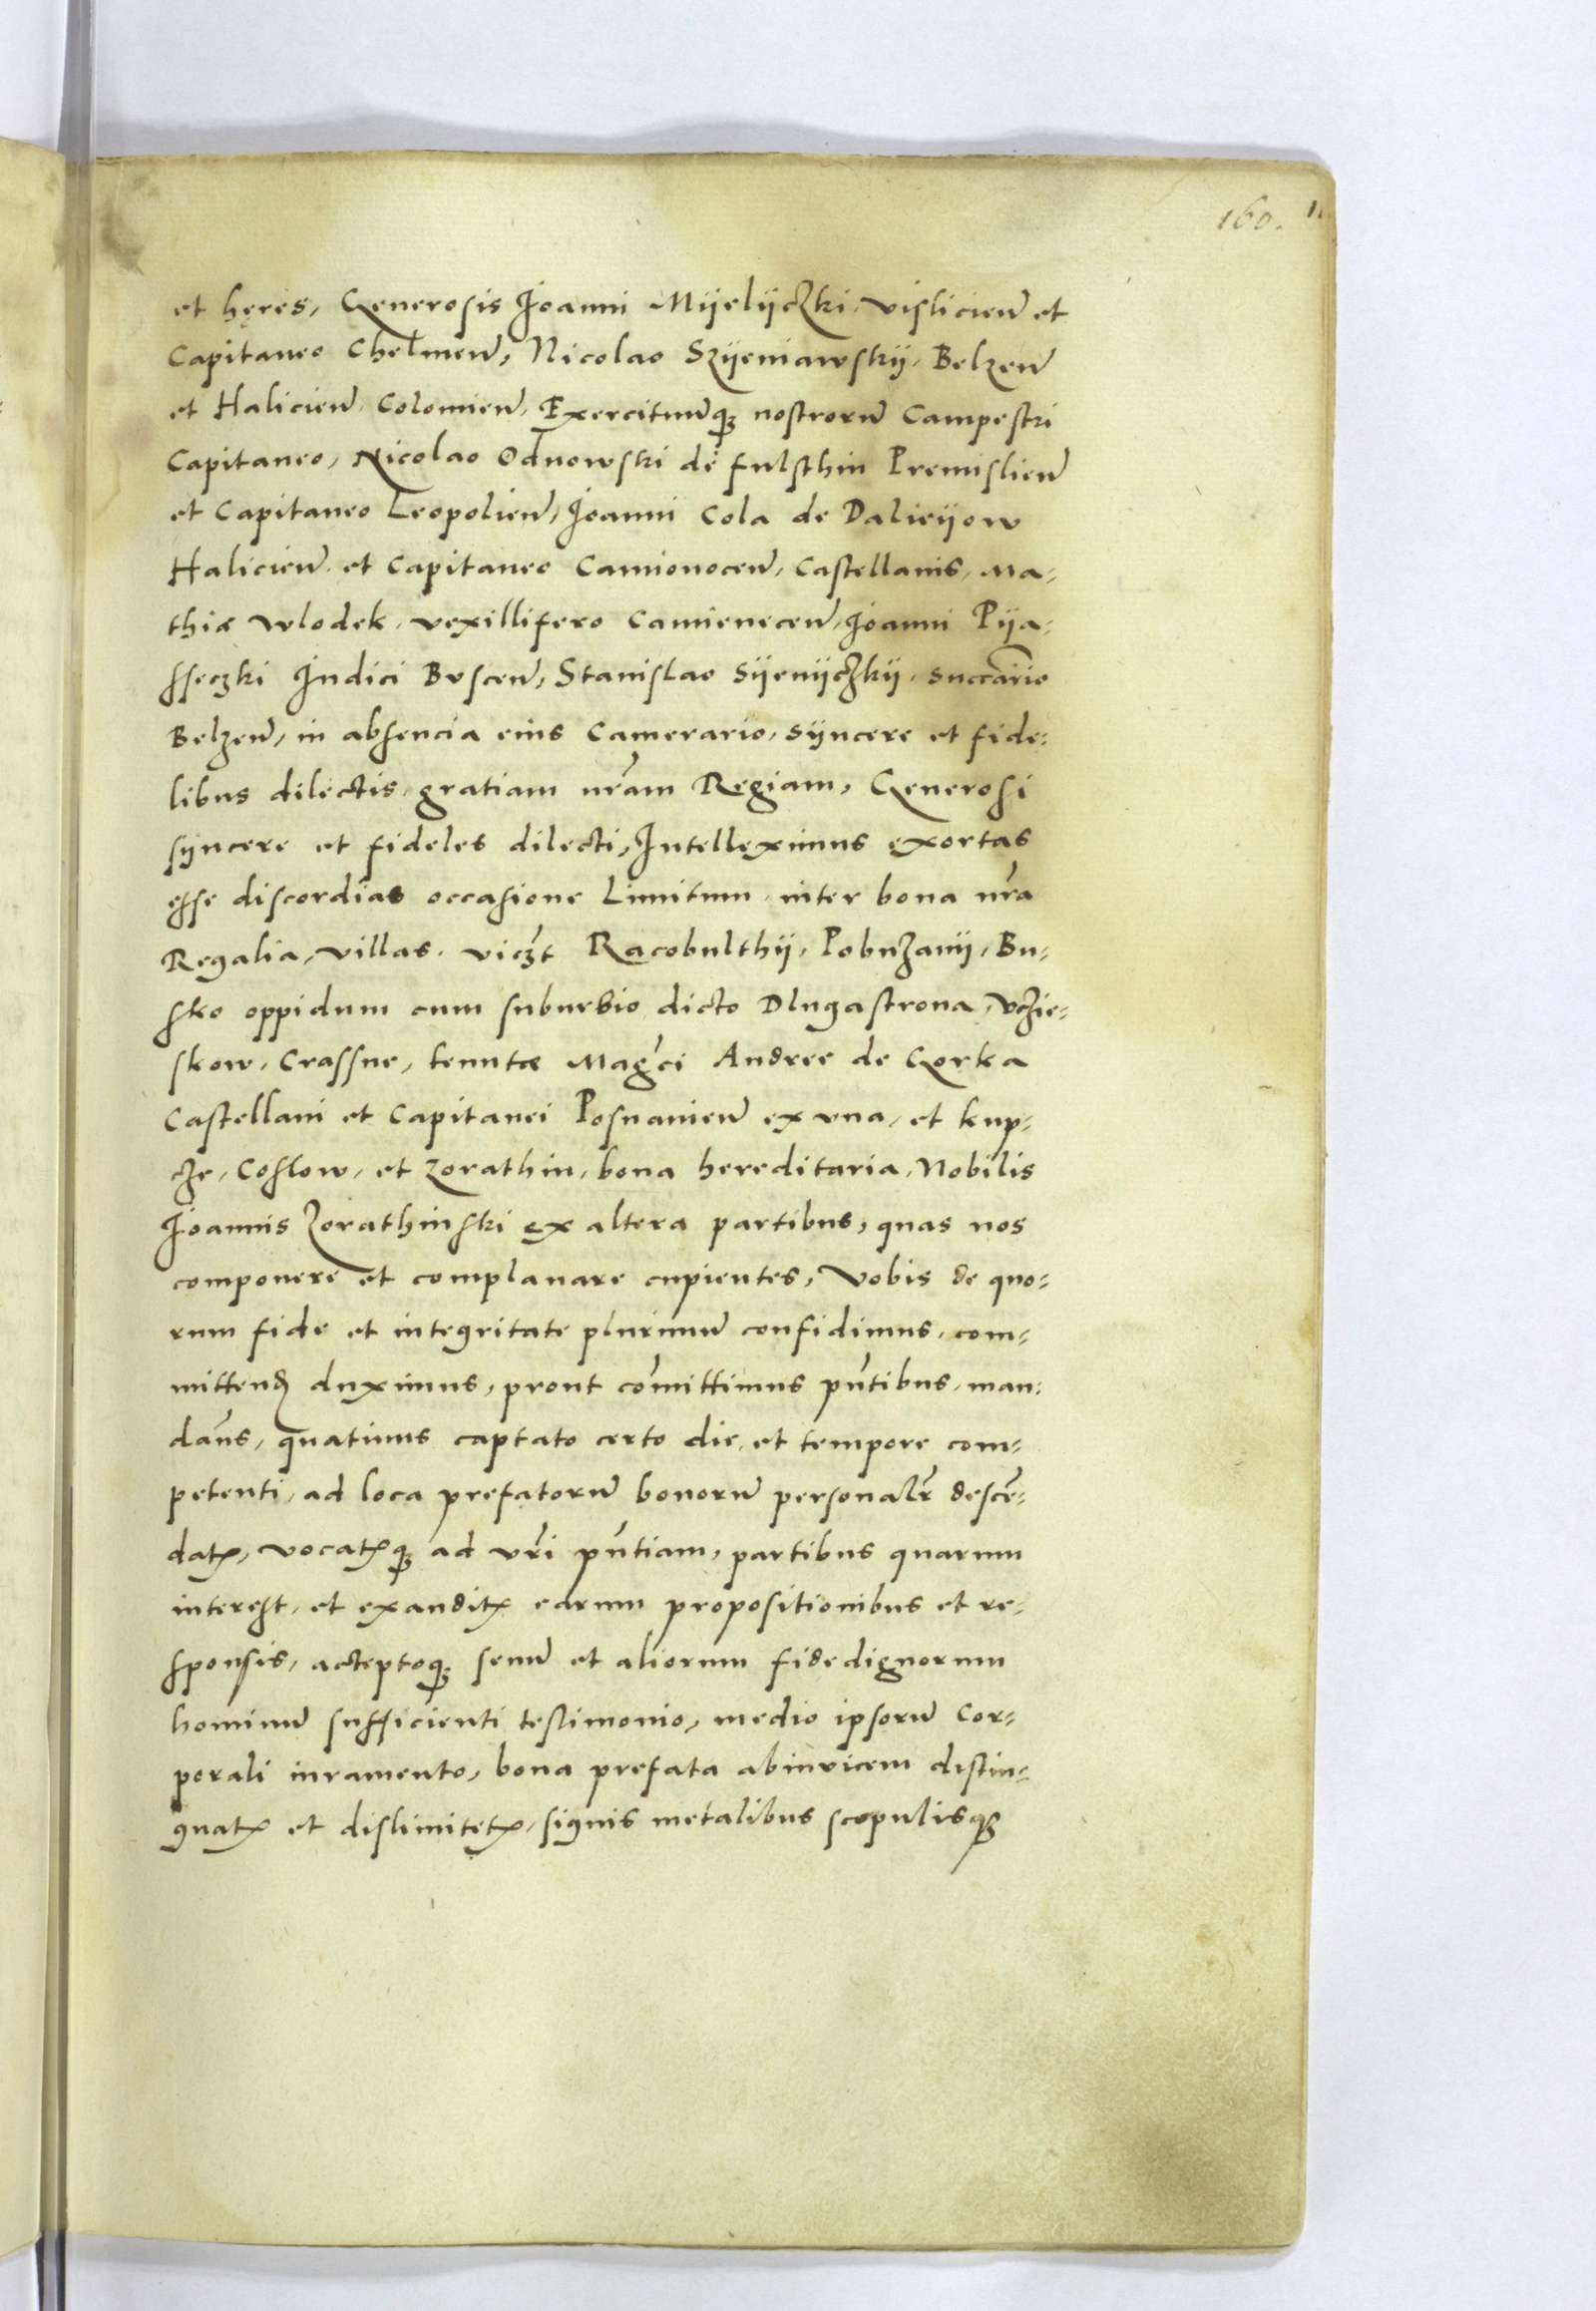 160.
et hęres, Generosis Joanni Mÿelÿczki, Visliciens̄ et
Capitaneo Chelmens̄, Nicolao Szÿeniawskÿ, Belzens̄
et Haliciens̄ Colomiens̄, Exercituumq; nostrorū Campestri
Capitaneo, Nicolao Odnowski de fulsthin Premisliens̄
et Capitaneo Leopoliens̄, Joanni Cola de Daliеÿow
Haliciens̄ et Capitaneo Camionocens̄, Castellanis, Ma-
thiæ Wlodek, vexillifero Camienecens̄, Joanni Pÿa-
sseczki Judici Buscens̄, Stanislao Sÿenÿczkÿ, Succ̄ario
Belzens̄, in absencia eius Camerario, sÿncere et fide-
libus dilectis gratiam nr̄am Regiam, Generosi
sÿncere et fideles dilecti, Intelleximus exortas
esse discordias occasione Limitum inter bona nr̄a
Regalia, villas, vicz̄t Racobulthÿ, Pobuzanÿ, Bu-
sko oppidum cum suburbio dicto Dlugastrona, Vczie-
skow, Crassne, tenutæ Mag̃ci Andree de Gorka
Castellani et Capitanei Posnaniens̄ ex vna, et kup-
cze, Coslow, et Zorathin, bona hereditaria, Nobilis
Joannis Zorathinski ex altera partibus, quas nos
componere et complanare cupientes, Vobis de quo-
rum fide et integritate plurimū confidimus, com-
mittend̄ duximus, prout com̄ittimus pn̄tibus, man-
dan̄s, quatinus captato certo die, et tempore com-
petenti, ad loca prefatorū bonorū personalr̄ descē-
datꝭ, vocatꝭq; ad vr̄i pn̄tiam, partibus quarum
interest, et exauditꝭ earum propositionibus et re-
sponsis, acceptoq; senū et aliorum fidedignorum
hominū sufficienti testimonio, medio ipsorū Cor-
porali iuramento, bona prefata abinvicem distin-
guatꝭ et dislimitetꝭ, signis metalibus scopulisq;